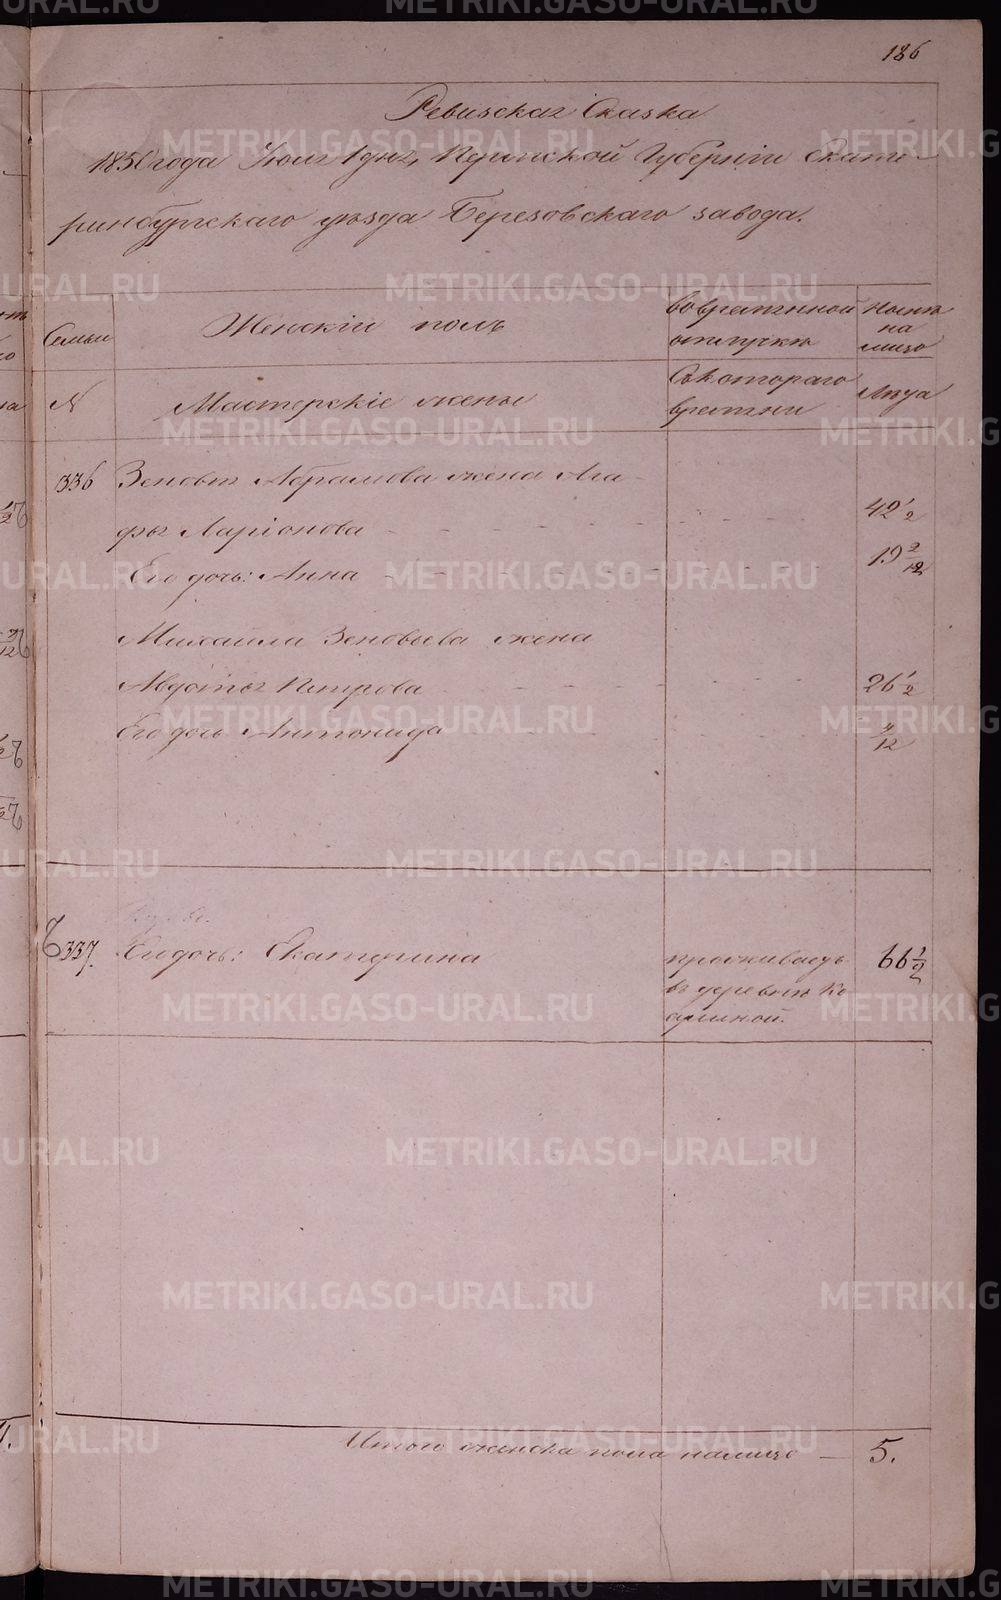 186
Ревизская Сказка
1850 года Июля 1 дня, Пермской Губернiи Екате-
ринбургскаго уѣзда Березовскаго завода.
Семьи
Женскiй полъ
во временной отлучкѣ
Нынѣ на лицо
N
Мастерскiе жены
Съ котораго времени
Лѣта
336
Зеновея Абрамова жена Ага-
фья Ларiонова 42 1/2
Его дочь: Анна 19 2/12
Михаила Зеновьева жена
Авдотья Петрова 26 1/2
Его дочь Антонида /12
337.
Его дочь: Екатерина
проживаетъ
въ деревнѣ Ко
66 1/2
Итого женска пола налицо — 5.
METRIKI.GASO-URAL.RU